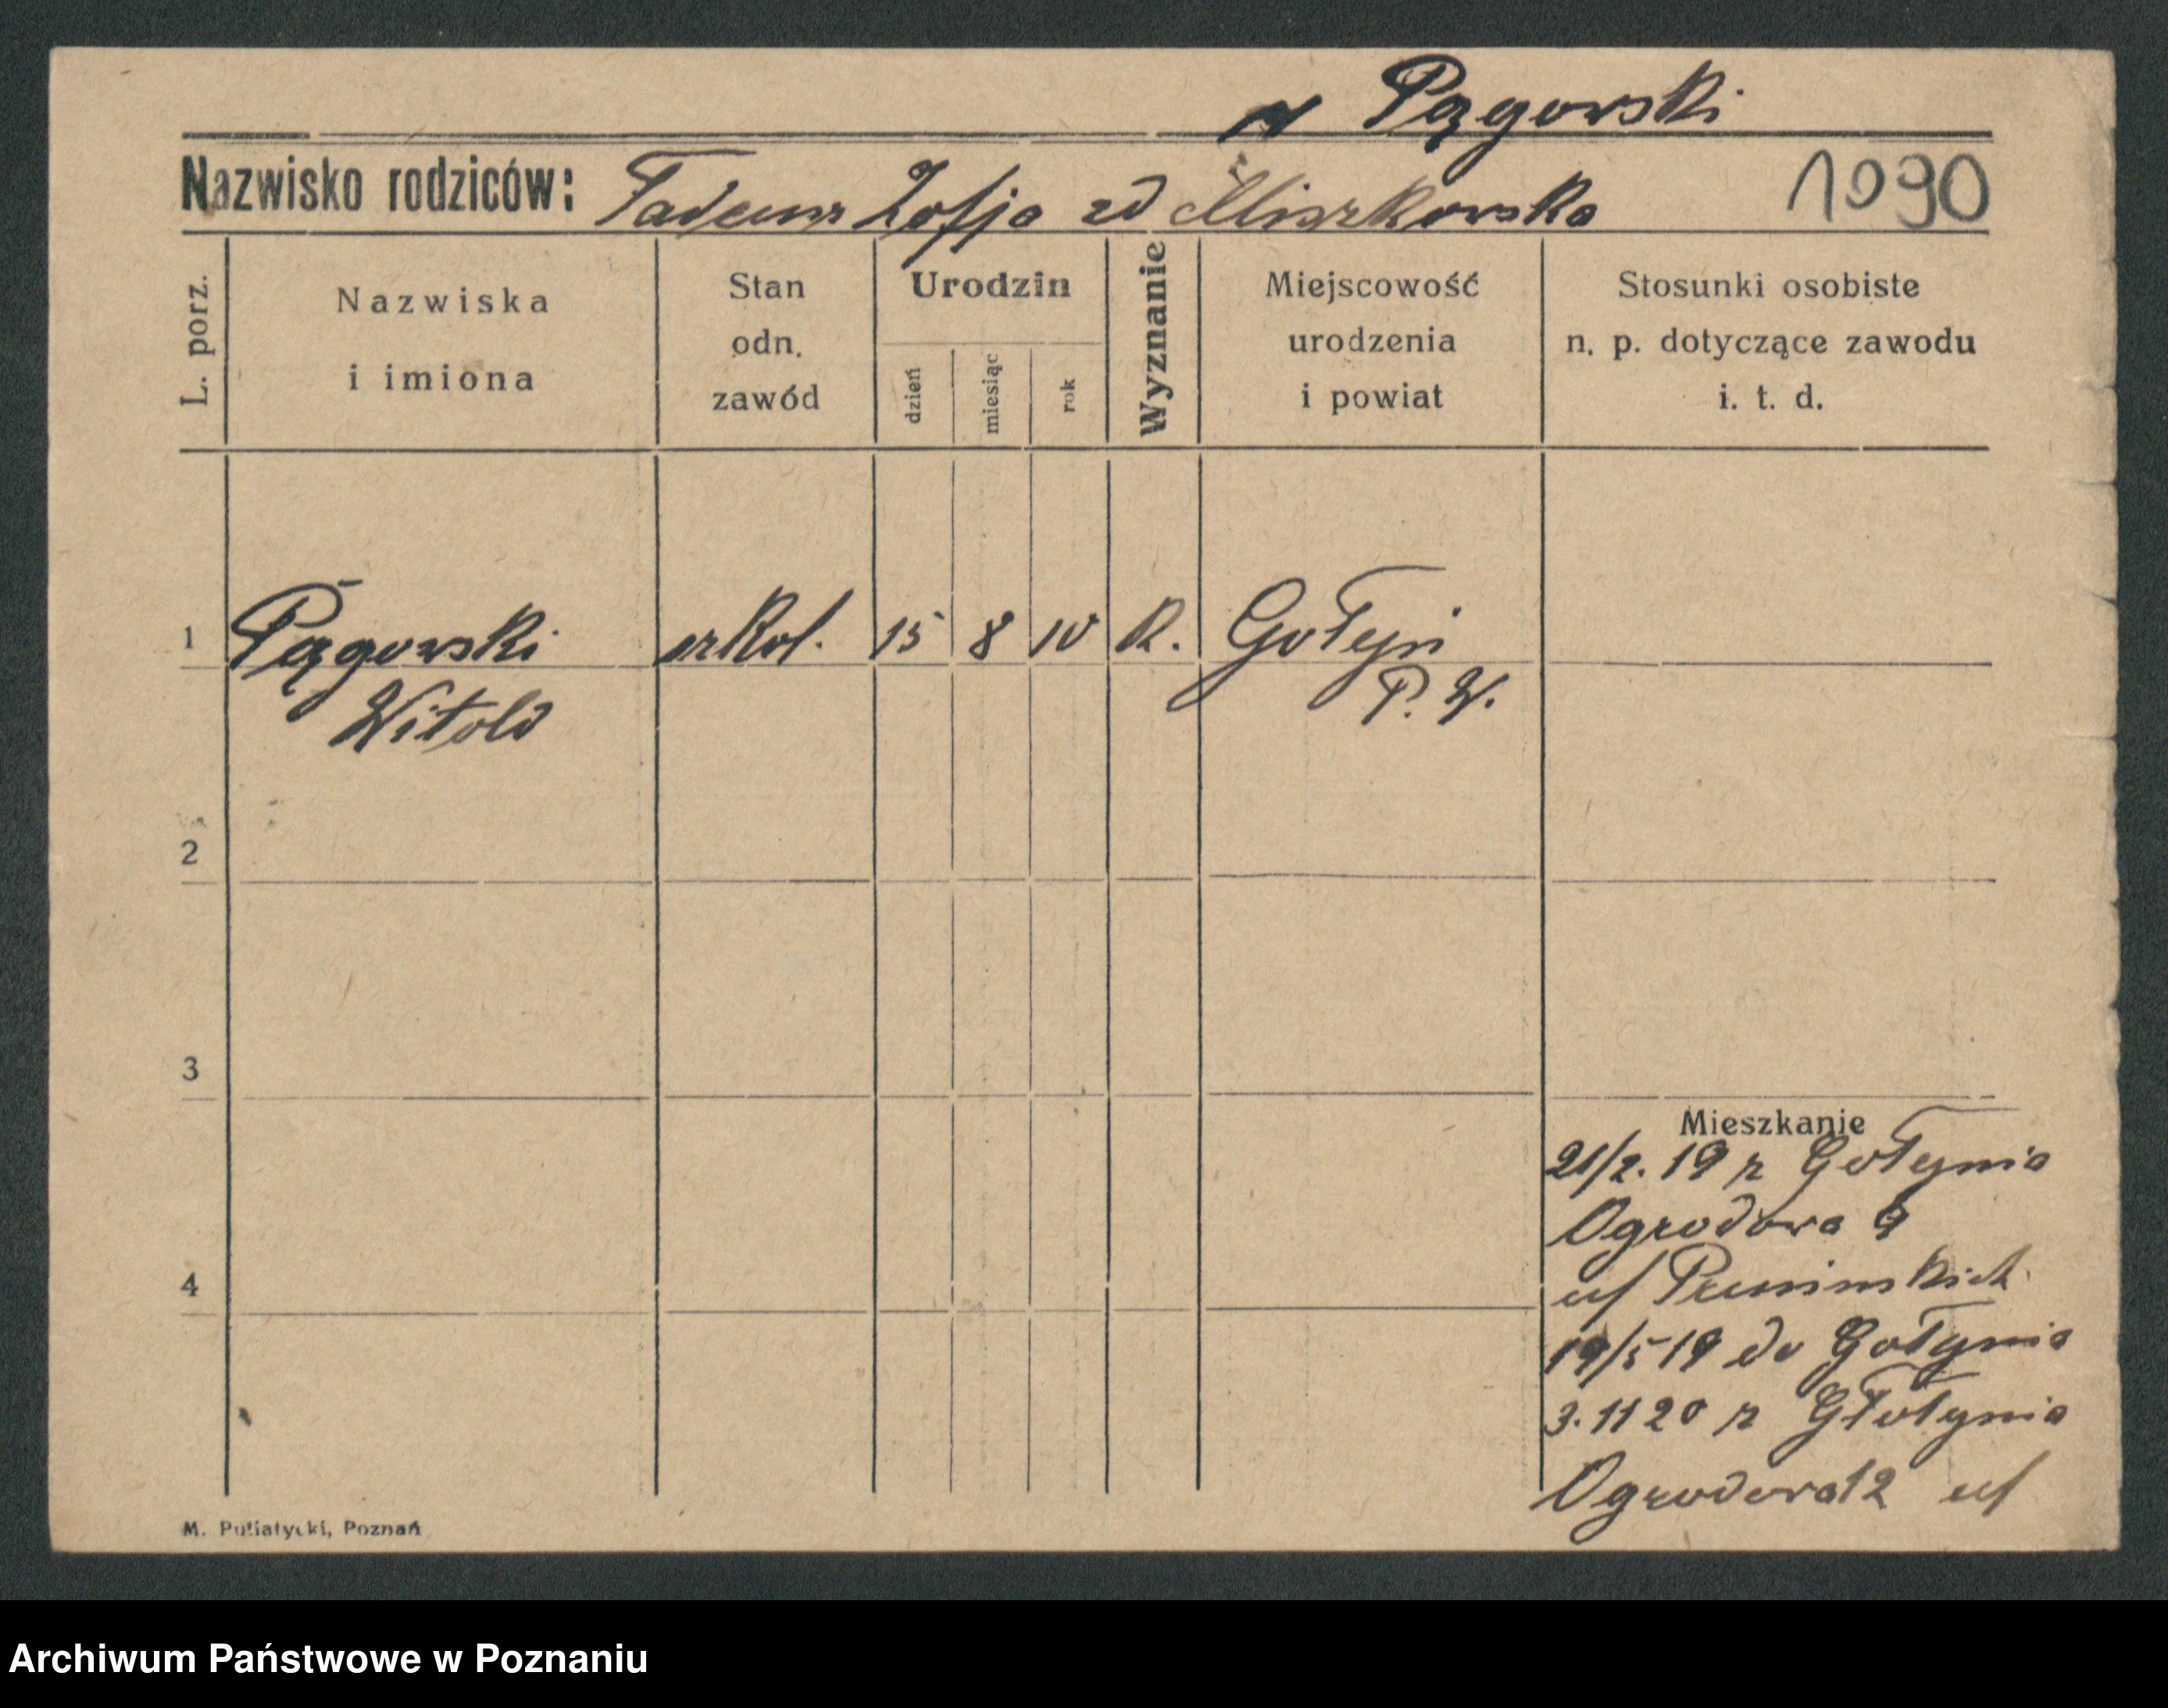 Pągowski
1090
Nazwisko rodziców: Tadeusz Zofja zd Miszkowska
L. porz.
Nazwiska
i imiona
Stan
odn.
zawód
Urodzin
dzień
miesiąc
rok
Wyznanie
Miejscowość
urodzenia
i powiat
Stosunki osobiste
n. p. dotyczące zawodu
i. t. d.
1 Pągowski szkol. 15 8 10 K. Gołyń
Witold P. W.
2
3
4
Mieszkanie
21/2. 19 z Gołynia
Ogrodowa 9
u/
19/5 19 do Gołynia
3. 11 20 z Głołynia
Ogrodowa 12 u/
M. Putiatycki, Poznań
Archiwum Państwowe w Poznaniu